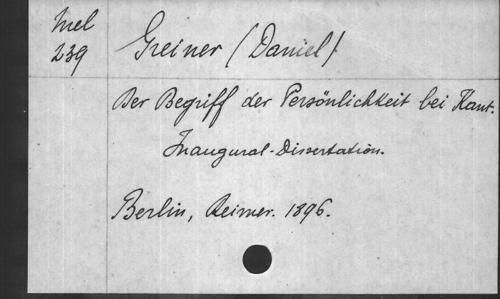 Mel
239
Greiner (Daniel).
Der Begriff der Persönlichkeit bei Kant.
Inaugural-Dissertation.
Berlin, Reimer. 1896.